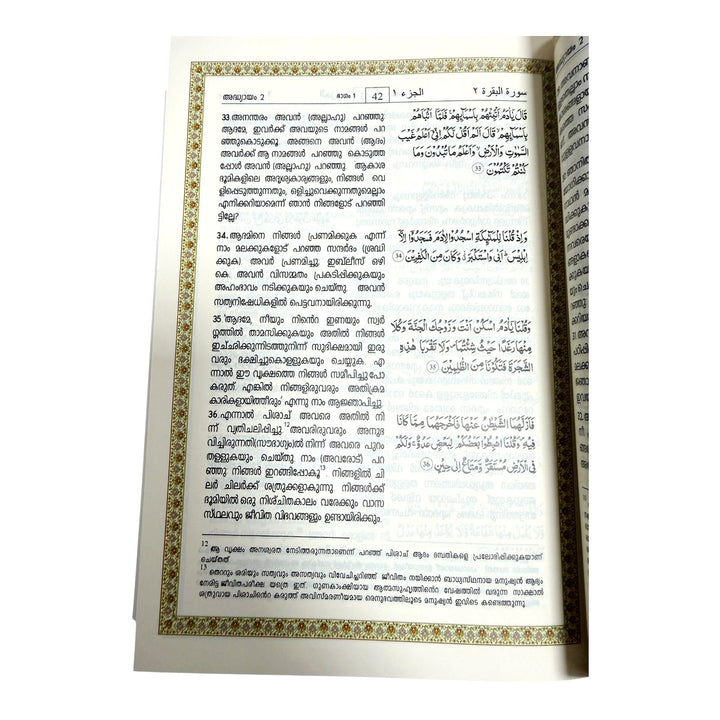 അദ്ധ്യായം 2
ഭാഗം 1
42
الجزء ١
سورة البقرة ٢
33.അനന്തരം അവൻ (അല്ലാഹു) പറഞ്ഞു.
ആദമേ, ഇവർക്ക് അവയുടെ നാമങ്ങൾ പറ
ഞ്ഞുകൊടുക്കൂ. അങ്ങനെ അവൻ (ആദം)
അവർക്ക് ആ നാമങ്ങൾ പറഞ്ഞു കൊടുത്ത
പ്പോൾ അവൻ (അല്ലാഹു) പറഞ്ഞു. ആകാശ
ഭൂമികളിലെ അദൃശ്യകാര്യങ്ങളും, നിങ്ങൾ വെ
ളിപ്പെടുത്തുന്നതും, ഒളിച്ചുവെക്കുന്നതുമെല്ലാം
എനിക്കറിയാമെന്ന് ഞാൻ നിങ്ങളോട് പറഞ്ഞി
ട്ടില്ലേ?
قَالَ يٰٓاٰدَمُ اَنْۢبِئْهُمْ بِاَسْمَآئِهِمْ ۚ فَلَمَّآ اَنْۢبَاَهُمْ
بِاَسْمَآئِهِمْ ۙ قَالَ اَلَمْ اَقُلْ لَّكُمْ اِنِّيْٓ اَعْلَمُ غَيْبَ
السَّمٰوٰتِ وَالْاَرْضِ ۙ وَاَعْلَمُ مَا تُبْدُوْنَ وَمَا
كُنْتُمْ تَكْتُمُوْنَ 33
34.ആദമിനെ നിങ്ങൾ പ്രണമിക്കുക എന്ന്
നാം മലക്കുകളോട് പറഞ്ഞ സന്ദർഭം (ശ്രദ്ധി
ക്കുക). അവർ പ്രണമിച്ചു. ഇബ്‌ലീസ് ഒഴി
കെ. അവൻ വിസമ്മതം പ്രകടിപ്പിക്കുകയും
അഹംഭാവം നടിക്കുകയും ചെയ്തു. അവൻ
സത്യനിഷേധികളിൽ പെട്ടവനായിരിക്കുന്നു.
وَاِذْ قُلْنَا لِلْمَلٰٓئِكَةِ اسْجُدُوْا لِاٰدَمَ فَسَجَدُوْٓا اِلَّآ
اِبْلِيْسَ ۭ اَبٰى وَاسْتَكْبَرَ ڭ وَكَانَ مِنَ الْكٰفِرِيْنَ 34
35.'ആദമേ, നീയും നിൻെറ ഇണയും സ്വർ
ഗ്ഗത്തിൽ താമസിക്കുകയും അതിൽ നിങ്ങൾ
ഇച്ഛിക്കുന്നിടത്തുനിന്ന് സുഭിക്ഷമായി ഇരു
വരും ഭക്ഷിച്ചുകൊള്ളുകയും ചെയ്യുക. എ
ന്നാൽ ഈ വൃക്ഷത്തെ നിങ്ങൾ സമീപിച്ചുപോ
കരുത്. എങ്കിൽ നിങ്ങളിരുവരും അതിക്രമ
കാരികളായിത്തീരും' എന്നു നാം ആജ്ഞാപിച്ചു.
وَقُلْنَا يٰٓاٰدَمُ اسْكُنْ اَنْتَ وَزَوْجُكَ الْجَنَّةَ وَكُلَا
مِنْهَا رَغَدًا حَيْثُ شِئْتُمَا ۠ وَلَا تَقْرَبَا هٰذِهِ
الشَّجَرَةَ فَتَكُوْنَا مِنَ الظّٰلِمِيْنَ 35
36.എന്നാൽ പിശാച് അവരെ അതിൽ നി
ന്ന് വ്യതിചലിപ്പിച്ചു.12 അവരിരുവരും അനുഭ
വിച്ചിരുന്നതി(സൗഭാഗ്യം)ൽ നിന്ന് അവരെ പുറം
തള്ളുകയും ചെയ്തു. നാം (അവരോട്) പറ
ഞ്ഞു. നിങ്ങൾ ഇറങ്ങിപ്പോകൂ13. നിങ്ങളിൽ ചി
ലർ ചിലർക്ക് ശത്രുക്കളാകുന്നു. നിങ്ങൾക്ക്
ഭൂമിയിൽ ഒരു നിശ്ചിതകാലം വരേക്കും വാസ
സ്ഥലവും ജീവിത വിഭവങ്ങളും ഉണ്ടായിരിക്കും.
فَاَزَلَّهُمَا الشَّيْطٰنُ عَنْهَا فَاَخْرَجَهُمَا مِمَّا كَانَا
فِيْهِ ۠ وَقُلْنَا اهْبِطُوْا بَعْضُكُمْ لِبَعْضٍ عَدُوٌّ ۚ وَلَكُمْ
فِى الْاَرْضِ مُسْتَقَرٌّ وَّمَتَاعٌ اِلٰى حِيْنٍ 36
12
ആ വൃക്ഷം അനശ്വരത നേടിത്തരുന്നതാണെന്ന് പറഞ്ഞ് പിശാച് ആദം ദമ്പതികളെ പ്രലോഭിപ്പിക്കുകയാണ്
ചെയ്തത്.
13
തെറ്റും ശരിയും സത്യവും അസത്യവും വിവേചിച്ചറിഞ്ഞ് ജീവിതം നയിക്കാൻ ബാധ്യസ്ഥനായ മനുഷ്യൻ ആദ്യം
നേരിട്ട ജീവിതപരീക്ഷ യത്രെ ഇത്. ഗുണകാംക്ഷിയായ ആത്മസുഹൃത്തിൻെറ വേഷത്തിൽ വരുന്ന സാക്ഷാൽ
ശത്രുവായ പിശാചിൻെറ കരുത്ത് അവിസ്മരണീയമായ ഒരനുഭവത്തിലൂടെ മനുഷ്യൻ ഇവിടെ കണ്ടെത്തുന്നു.